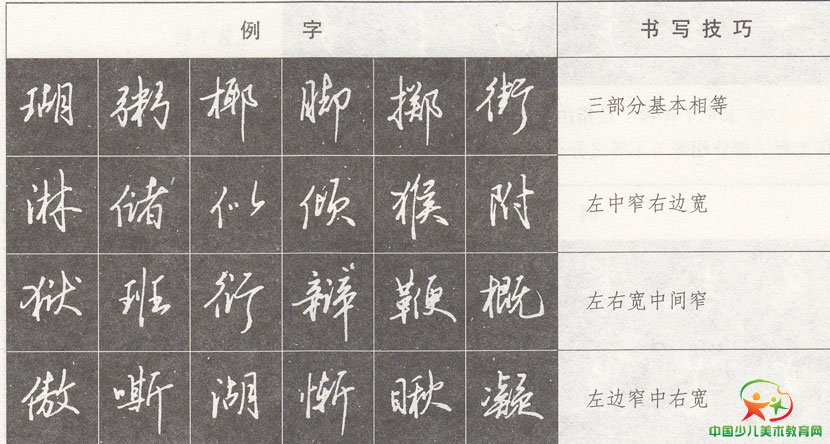 例 字 书写技巧
瑚 粥 椰 脚 掷 街 三部分基本相等
淋 储 似 倾 猴 附 左中窄右边宽
狱 班 衍 辩 鞭 概 左右宽中间窄
傲 嘶 湖 惭 瞅 凝 左边窄中右宽
中国少儿美术教育网